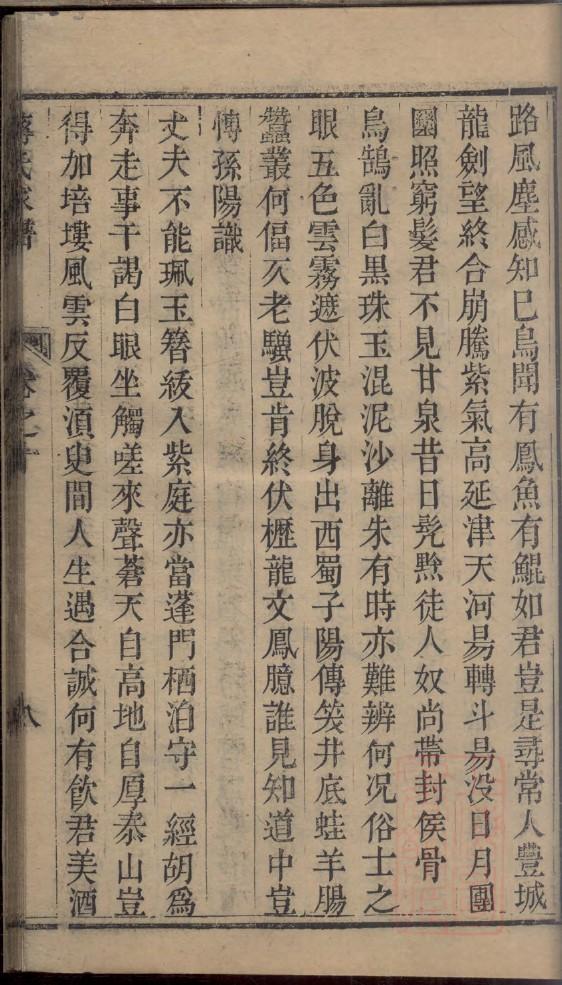 路風塵感知巳鳥聞有鳳魚有鯤如君豈是尋常人豐城
龍劍望終合崩騰紫氣高延津天河易轉斗易没日月團
圞照窮髮君不見甘泉昔日髡黥徒人奴尚帶封侯骨
烏鵠亂白黑珠玉混泥沙離朱有時亦難辨何况俗士之
眼五色雲霧遮伏波脫身出西蜀子陽傳笑井底蛙羊腸
蠶叢何偪仄老驥豈肯終伏櫪龍文鳳臆誰見知道中豈
愽孫陽識
丈夫不能珮玉簪紱入紫庭亦當蓬門栖泊守一經胡爲
奔走事干謁白眼坐觸嗟來聲蒼天自高地自厚泰山豈
得加培塿風雲反覆湏臾間人生遇合誠何有飲君美酒
蔣氏家譜 卷之 八